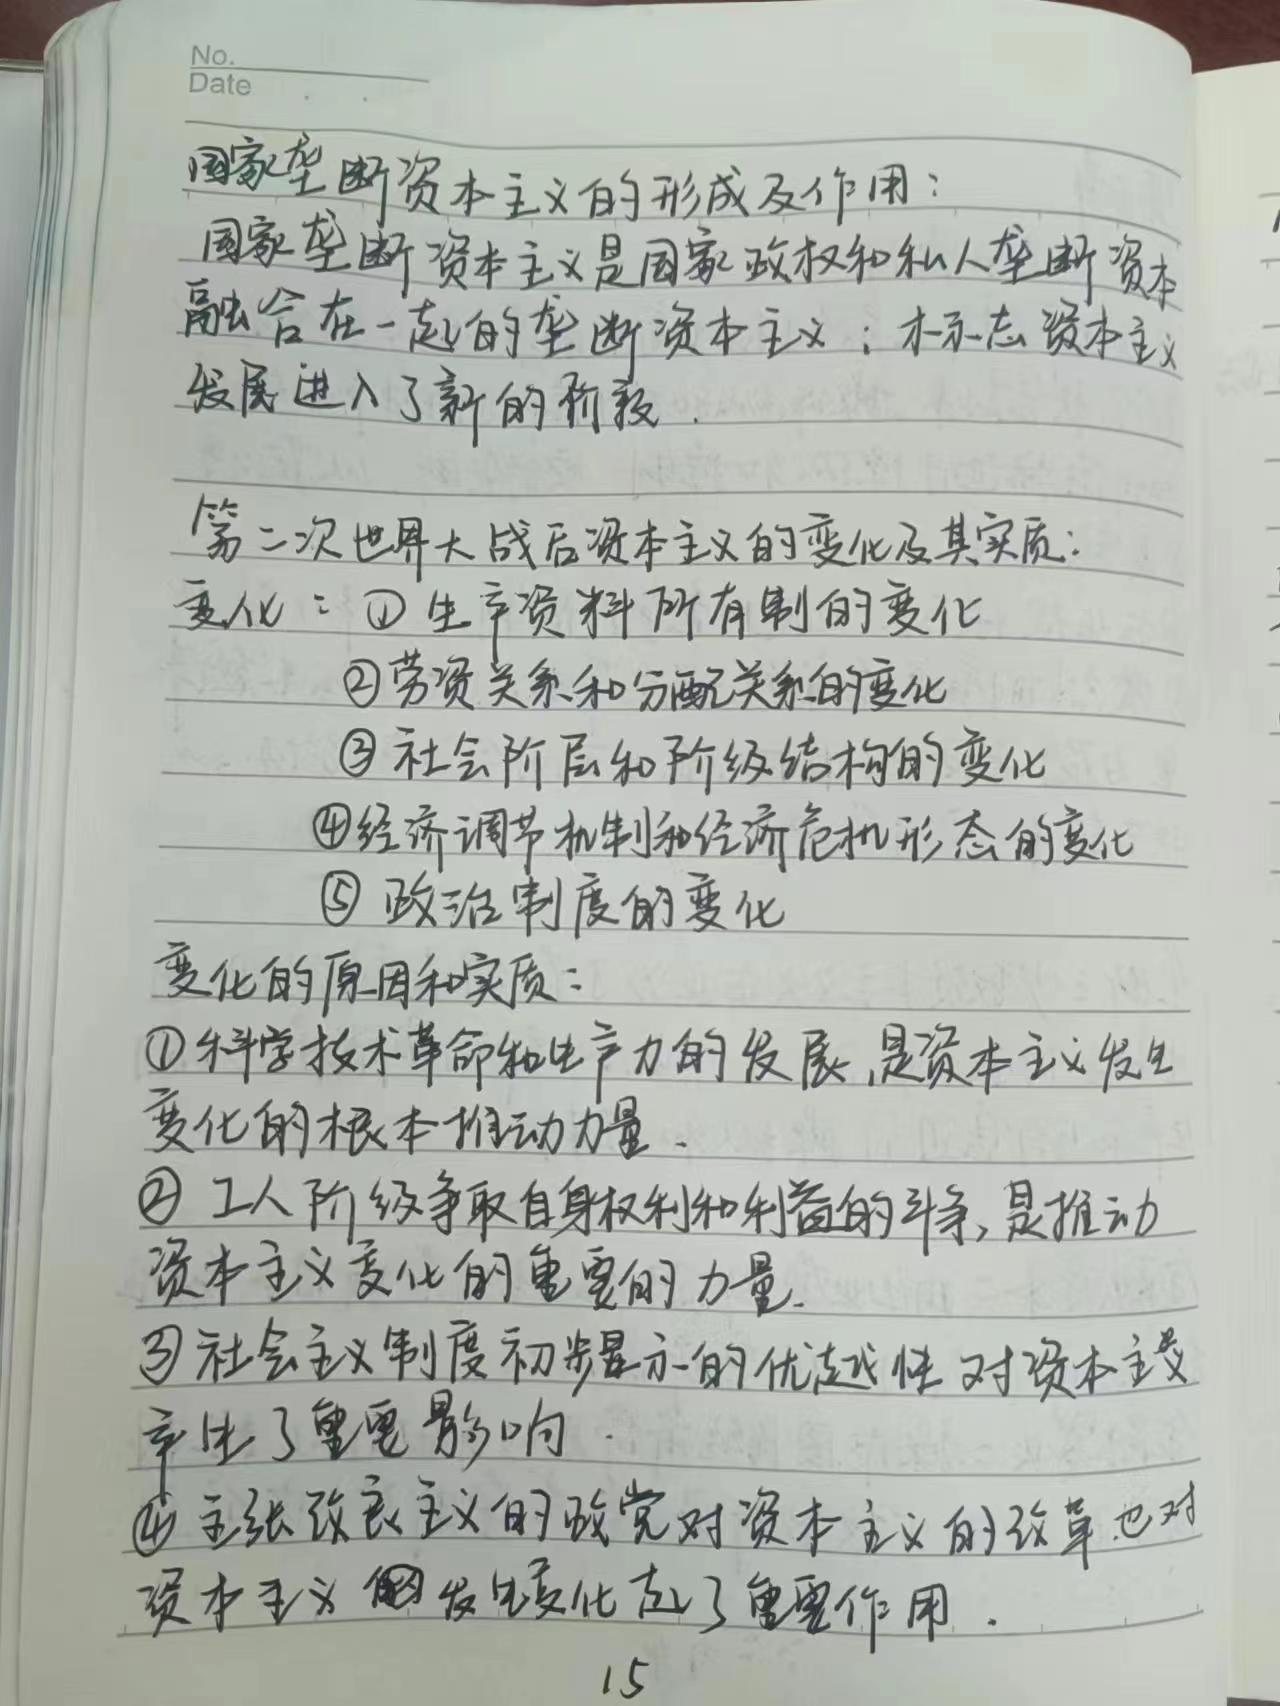 No.
Date
国家垄断资本主义的形成及作用：
国家垄断资本主义是国家政权和私人垄断资本
融合在一起的垄断资本主义；标志资本主义
发展进入了新的阶段.
第二次世界大战后资本主义的变化及其实质：
变化：①生产资料所有制的变化
②劳资关系和分配关系的变化
③社会阶层和阶级结构的变化
④经济调节机制和经济危机形态的变化
⑤政治制度的变化
变化的原因和实质：
①科学技术革命和生产力的发展,是资本主义发生
变化的根本推动力量.
②工人阶级争取自身权利和利益的斗争,是推动
资本主义变化的重要的力量.
③社会主义制度初步显示的优越性对资本主义
产生了重要影响.
④主张改良主义的政党对资本主义的改革也对
资本主义发生变化起了重要作用.
15